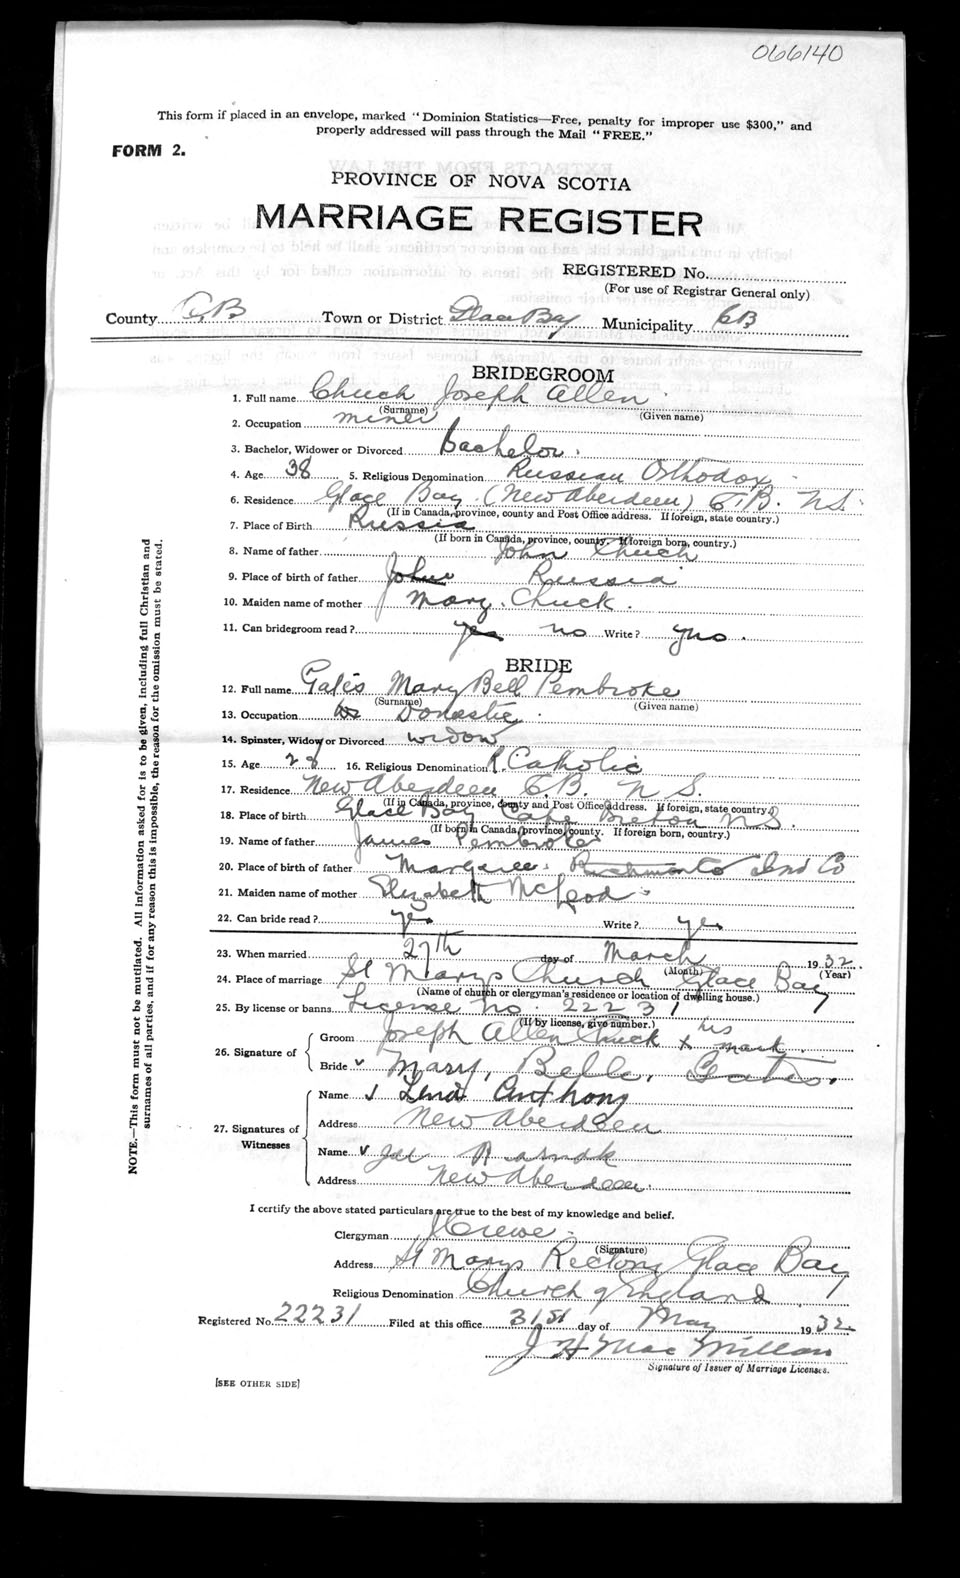 066140
This form if placed in an envelope, marked "Dominion Statistics—Free, penalty for improper use $300," and
properly addressed will pass through the Mail "FREE."
FORM 2.
PROVINCE OF NOVA SCOTIA
MARRIAGE REGISTER
REGISTERED No.
(For use of Registrar General only)
County CB Town or District Glace Bay Municipality CB
BRIDEGROOM
1. Full name Chuck Joseph Allen
(Surname) (Given name)
2. Occupation miner
3. Bachelor, Widower or Divorced Bachelor.
4. Age 38 5. Religious Denomination Russian Orthodox
6. Residence Glace Bay (New Aberdeen) C.B. N.S.
(If in Canada, province, county and Post Office address. If foreign, state country.)
7. Place of Birth Russia
(If born in Canada, province, county. If foreign born, country.)
8. Name of father John Chuck
9. Place of birth of father John Russia
10. Maiden name of mother Mary Chuck.
11. Can bridegroom read? yes no Write? no.
BRIDE
12. Full name Mary Bell Pembroke
(Surname) (Given name)
13. Occupation Domestic
14. Spinster, Widow or Divorced widow
15. Age 16. Religious Denomination R. Catholic
17. Residence New Aberdeen C.B. N.S.
(If in Canada, province, county and Post Office address. If foreign, state country.)
18. Place of birth Glace Bay Cape Breton N.S.
(If born in Canada, province, county. If foreign born, country.)
19. Name of father James Pembroke
20. Place of birth of father Margaree Richmond Co
21. Maiden name of mother Elizabeth McLeod
22. Can bride read? yes Write? yes
23. When married 27th day of March 1932.
(Month) (Year)
24. Place of marriage St Marys Church Glace Bay
(Name of church or clergyman's residence or location of dwelling house.)
25. By license or banns License no. 22231
(If by license, give number.)
26. Signature of
Groom Joseph Allen Chuck x his mark.
Bride v Mary, Belle, Gates.
27. Signatures of Witnesses
Name Anthony
Address New Aberdeen
Name v Joe
Address New Aberdeen.
I certify the above stated particulars are true to the best of my knowledge and belief.
Clergyman
(Signature)
Address St Marys Rectory Glace Bay
Religious Denomination Church of England
Registered No. 22231 Filed at this office 31st day of May 1932
J H MacMillan
Signature of Issuer of Marriage Licenses.
[SEE OTHER SIDE]
NOTE.—This form must not be mutilated. All information asked for is to be given, including full Christian and
surnames of all parties, and if for any reason this is impossible, the reason for the omission must be stated.